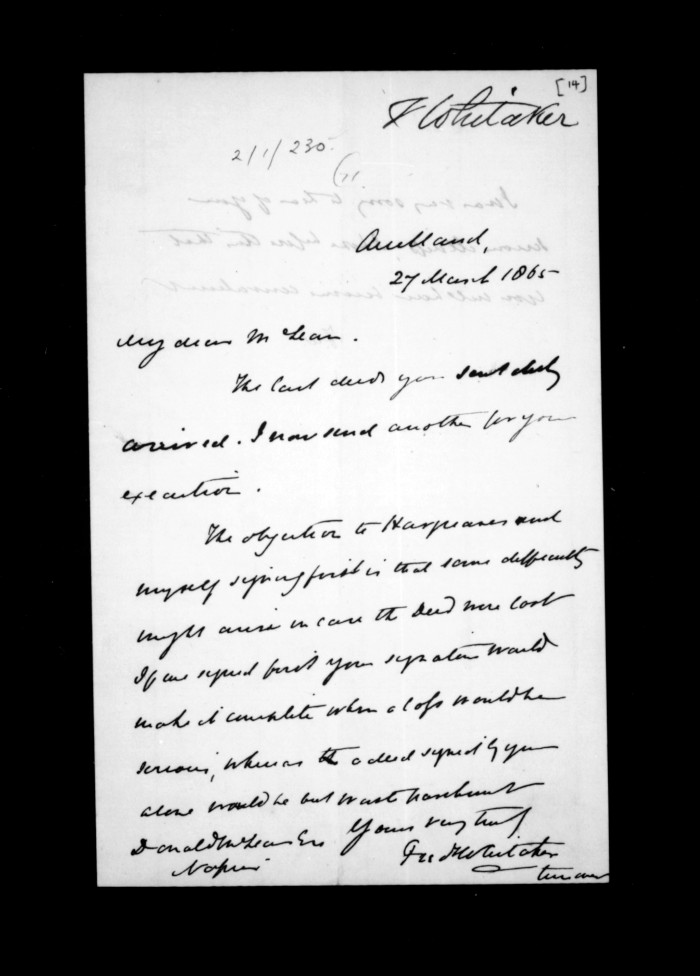 [14]
F Whitaker
2/1/230.
Auckland,
27 March 1865
My dear McLean.
The last deeds you sent duly
arrived. I now send another for your
execution.
The objection to Hargreaves and
myself signing first is that some difficulty
might arise in case the Deed were lost
If we signed first your signature would
make it complete when a loss would be
serious, whereas the a deed signed by you
alone would be but waste parchment
Yours very truly
Donald McLean Esq
Fredk Whitaker
Napier
turn over